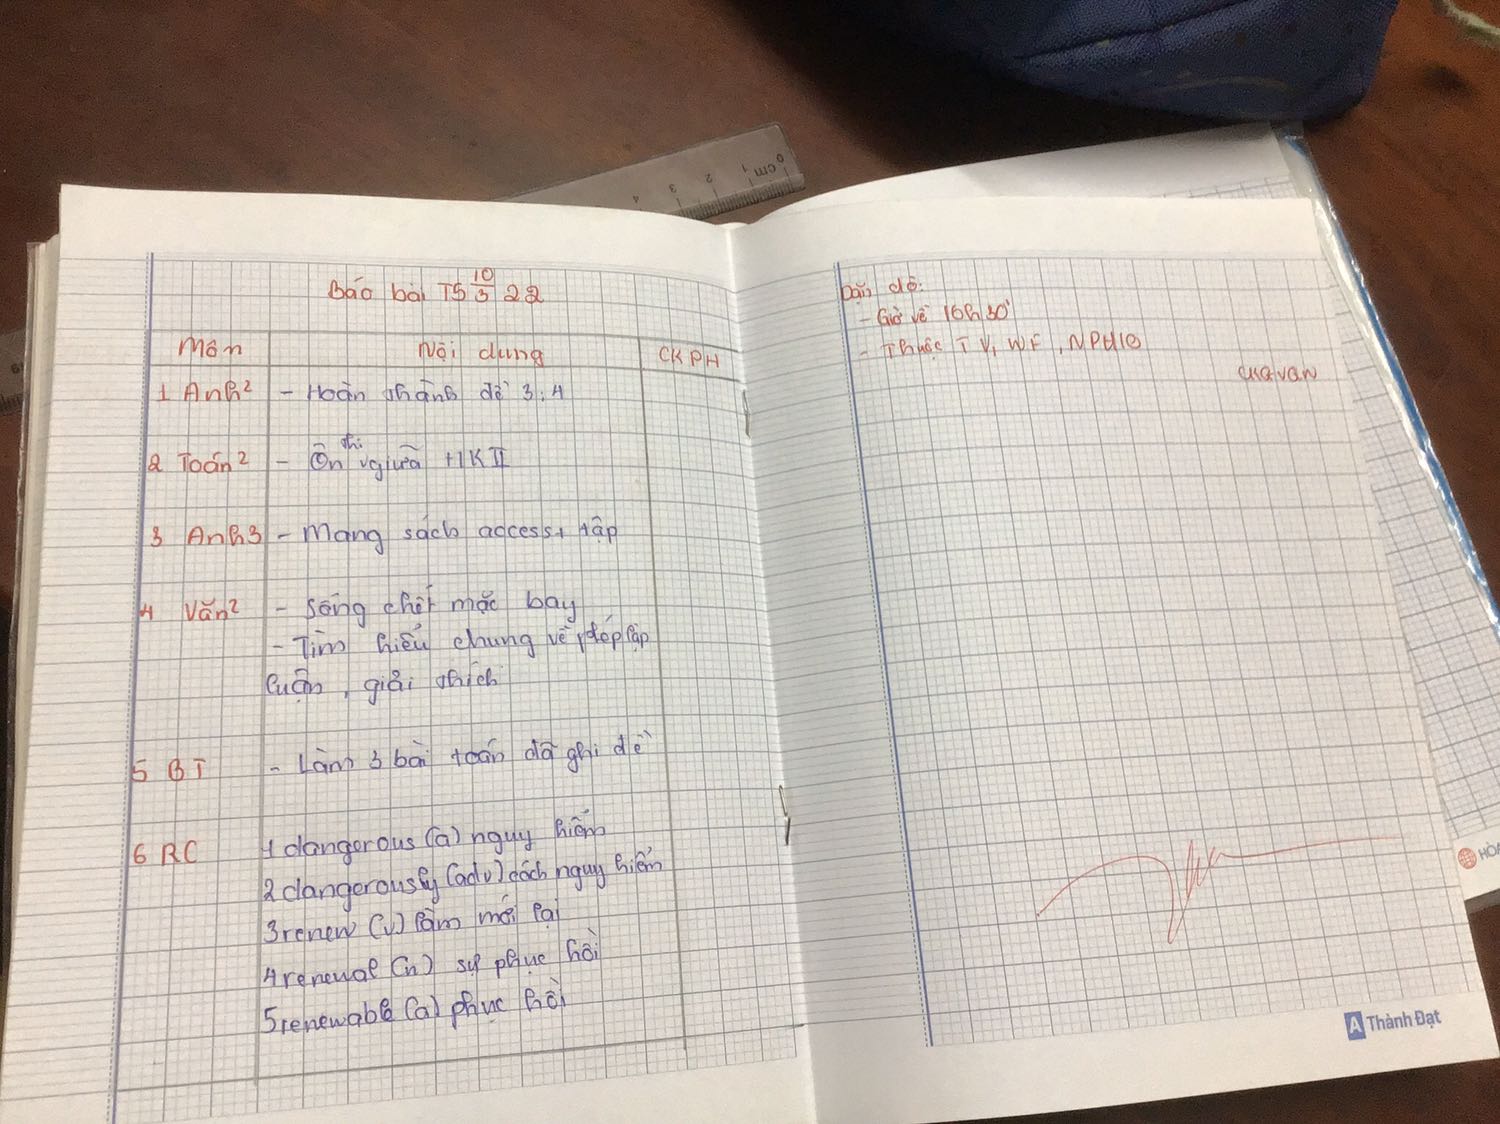 Báo bài T5 10/3 22
Môn Nội dung CKPH
1 Anh² - Hoàn thành đề 3, 4
2 Toán² - Ôn thi giữa HKII
3 Anh3 - Mang sách access + tập
4 Văn² - Sống chết mặc bay
- Tìm hiểu chung về phép lập
luận, giải thích
5 BT - Làm 3 bài toán đã ghi đề
6 RC 1 dangerous (a) nguy hiểm
2 dangerously (adv) cách nguy hiểm
3 renew (v) làm mới lại
4 renewal (n) sự phục hồi
5 renewable (a) phục hồi
Dặn dò:
- Giờ về 16h30'
- Thuộc TV, WF, NPH10
A Thành Đạt
0 cm 1 2 3 4